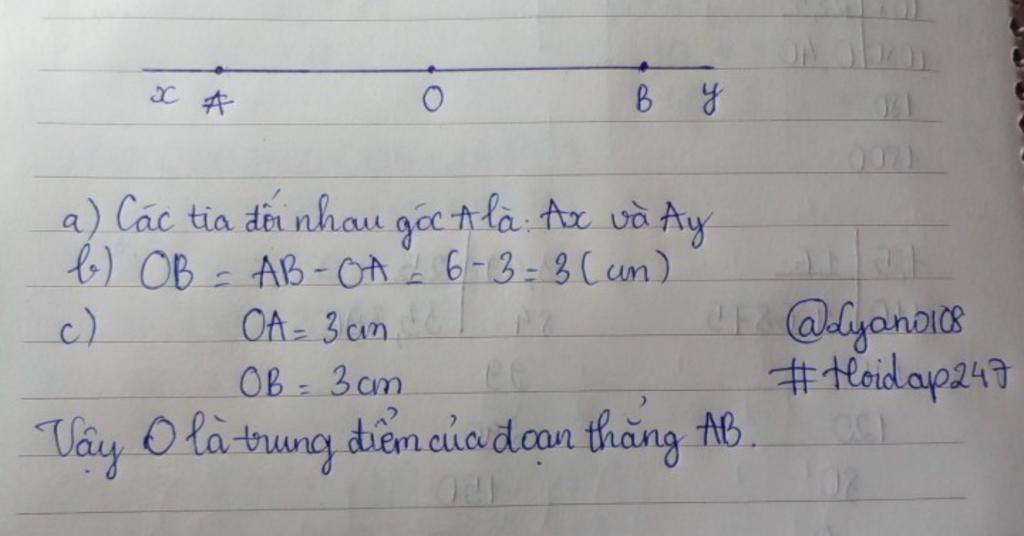 x A O B y
a) Các tia đối nhau gốc A là: Ax và Ay
b) OB = AB - OA = 6 - 3 = 3 (cm)
c) OA = 3 cm
@Lyano108
OB = 3 cm
#Hoidap247
Vậy O là trung điểm của đoạn thẳng AB.